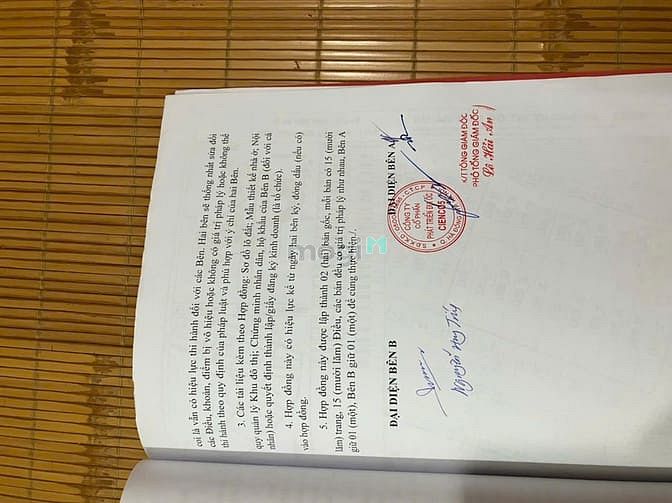 coi là vẫn có hiệu lực thi hành đối với các Bên. Hai bên sẽ thống nhất sửa đổi
các Điều, khoản, điểm bị vô hiệu hoặc không có giá trị pháp lý hoặc không thể
thi hành theo quy định của pháp luật và phù hợp với ý chí của hai Bên.
3. Các tài liệu kèm theo Hợp đồng: Sơ đồ lô đất; Mẫu thiết kế nhà ở; Nội
quy quản lý Khu đô thị; Chứng minh nhân dân, hộ khẩu của Bên B (đối với cá
nhân) hoặc quyết định thành lập/giấy đăng ký kinh doanh (là tổ chức).
4. Hợp đồng này có hiệu lực kể từ ngày hai bên ký, đóng dấu (nếu có)
vào hợp đồng.
5. Hợp đồng này được lập thành 02 (hai) bản gốc, mỗi bản có 15 (mười
lăm) trang, 15 (mười lăm) Điều, các bản đều có giá trị pháp lý như nhau, Bên A
giữ 01 (một), Bên B giữ 01 (một) để cùng thực hiện./.
ĐẠI DIỆN BÊN B
ĐẠI DIỆN BÊN A
CÔNG TY
CỔ PHẦN
PHÁT TRIỂN ĐỊA ỐC
CIENCO5
KT.TỔNG GIÁM ĐỐC
PHÓ TỔNG GIÁM ĐỐC
Lê Hải An
Nguyễn Huy
mogi